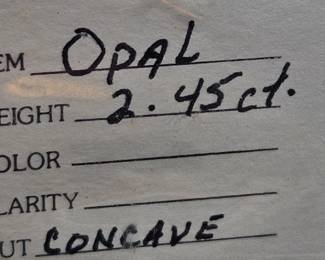 EM OPAL
EIGHT 2.45 ct.
OLOR
LARITY
UT CONCAVE